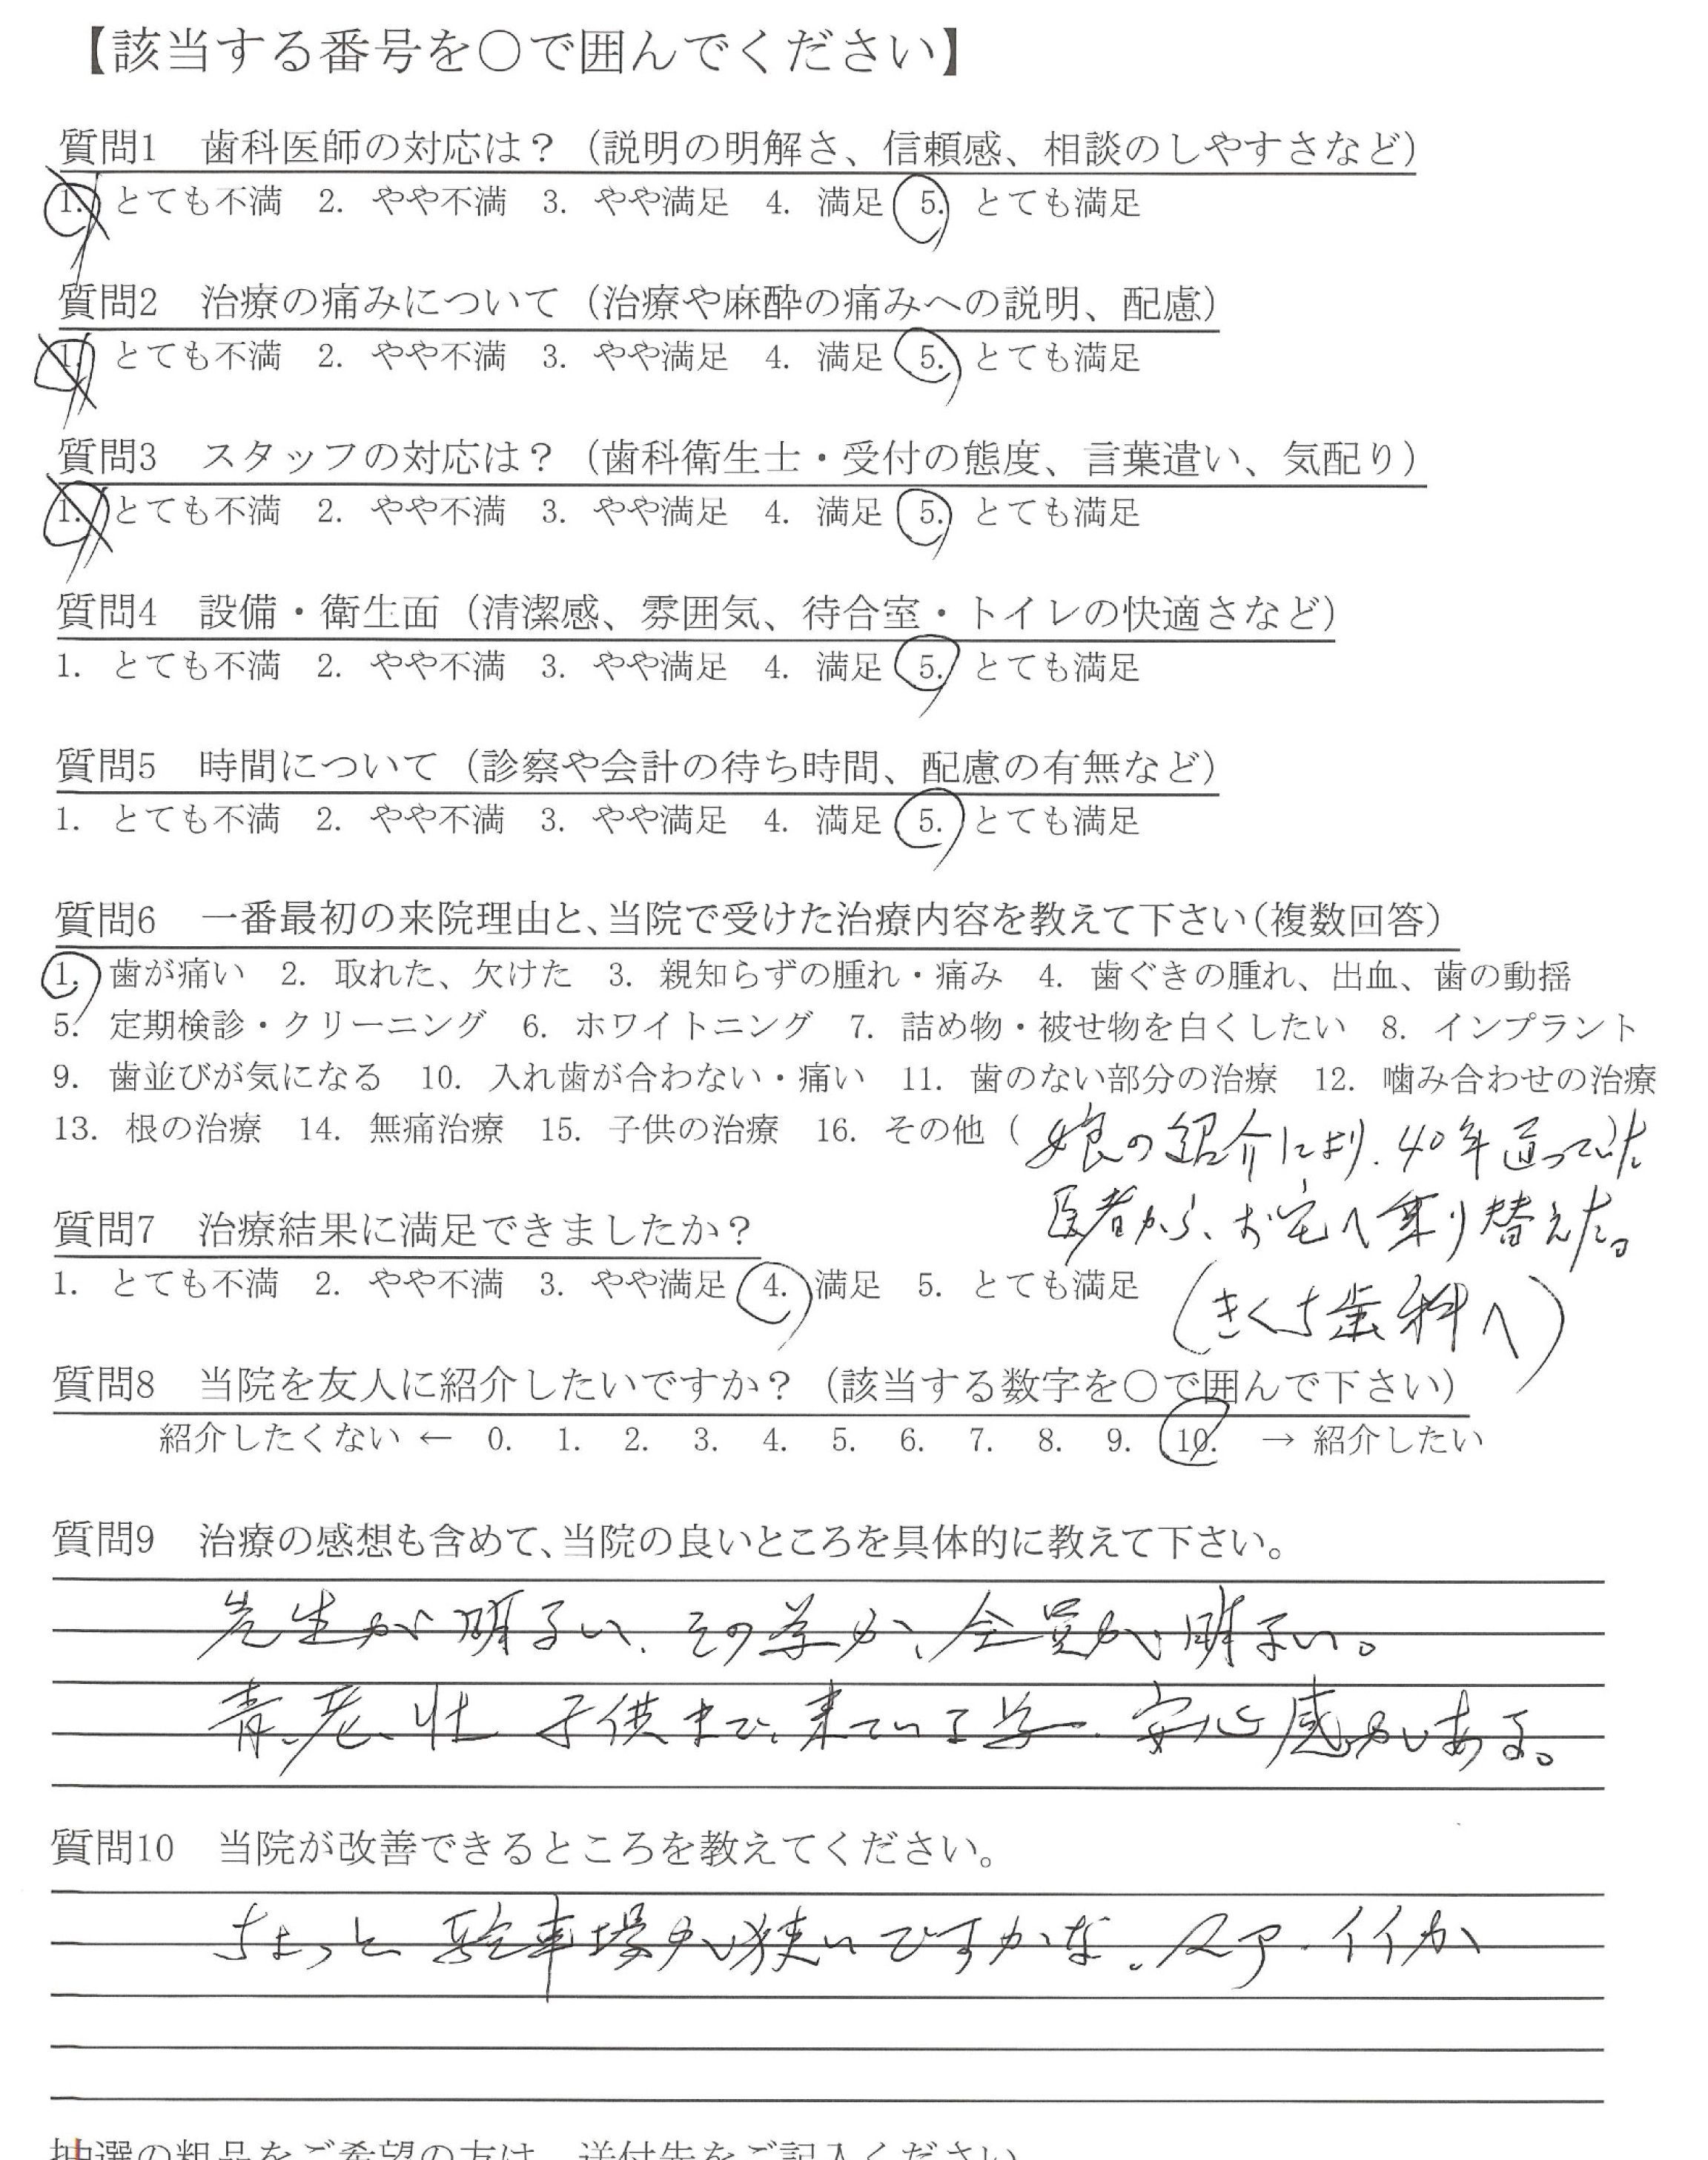 【該当する番号を〇で囲んでください】
質問1　歯科医師の対応は？（説明の明解さ、信頼感、相談のしやすさなど）
1.　とても不満　2.　やや不満　3.　やや満足　4.　満足　5.　とても満足
質問2　治療の痛みについて（治療や麻酔の痛みへの説明、配慮）
1.　とても不満　2.　やや不満　3.　やや満足　4.　満足　5.　とても満足
質問3　スタッフの対応は？（歯科衛生士・受付の態度、言葉遣い、気配り）
1.　とても不満　2.　やや不満　3.　やや満足　4.　満足　5.　とても満足
質問4　設備・衛生面（清潔感、雰囲気、待合室・トイレの快適さなど）
1.　とても不満　2.　やや不満　3.　やや満足　4.　満足　5.　とても満足
質問5　時間について（診察や会計の待ち時間、配慮の有無など）
1.　とても不満　2.　やや不満　3.　やや満足　4.　満足　5.　とても満足
質問6　一番最初の来院理由と、当院で受けた治療内容を教えて下さい（複数回答）
1.　歯が痛い　2.　取れた、欠けた　3.　親知らずの腫れ・痛み　4.　歯ぐきの腫れ、出血、歯の動揺
5.　定期検診・クリーニング　6.　ホワイトニング　7.　詰め物・被せ物を白くしたい　8.　インプラント
9.　歯並びが気になる　10.　入れ歯が合わない・痛い　11.　歯のない部分の治療　12.　噛み合わせの治療
13.　根の治療　14.　無痛治療　15.　子供の治療　16.　その他（娘の紹介により、40年通っていた
医者から、お宅へ乗り替えた。
（きくち歯科へ）
質問7　治療結果に満足できましたか？
1.　とても不満　2.　やや不満　3.　やや満足　4.　満足　5.　とても満足
質問8　当院を友人に紹介したいですか？（該当する数字を〇で囲んで下さい）
紹介したくない ← 0.　1.　2.　3.　4.　5.　6.　7.　8.　9.　10.　→ 紹介したい
質問9　治療の感想も含めて、当院の良いところを具体的に教えて下さい。
先生が明るい、その為か、全員が明るい。
青、老、壮　子供まで、来ている。安心感がある。
質問10　当院が改善できるところを教えてください。
ちょっと駐車場が狭いですかな。イイか
抽選の粗品をご希望の方は、送付先をご記入ください